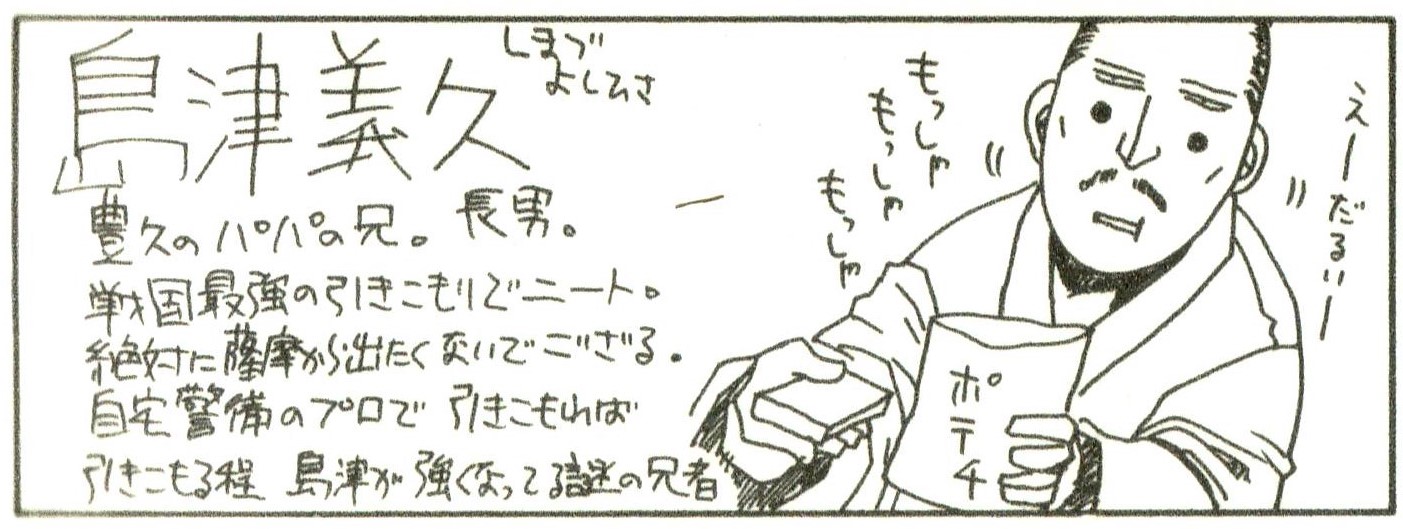 島津義久
しまづ
よしひさ
豊久のパパの兄。長男。
戦国最強の引きこもりでニート。
絶対に薩摩から出たくないでござる。
自宅警備のプロで引きこもれば
引きこもる程 島津が強くなってる謎の兄者
もっしゃ
もっしゃ
もっしゃ
ポテチ
えーだるいー